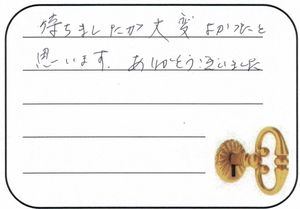 待ちましたが大変よかったと
思います。ありがとう ございました